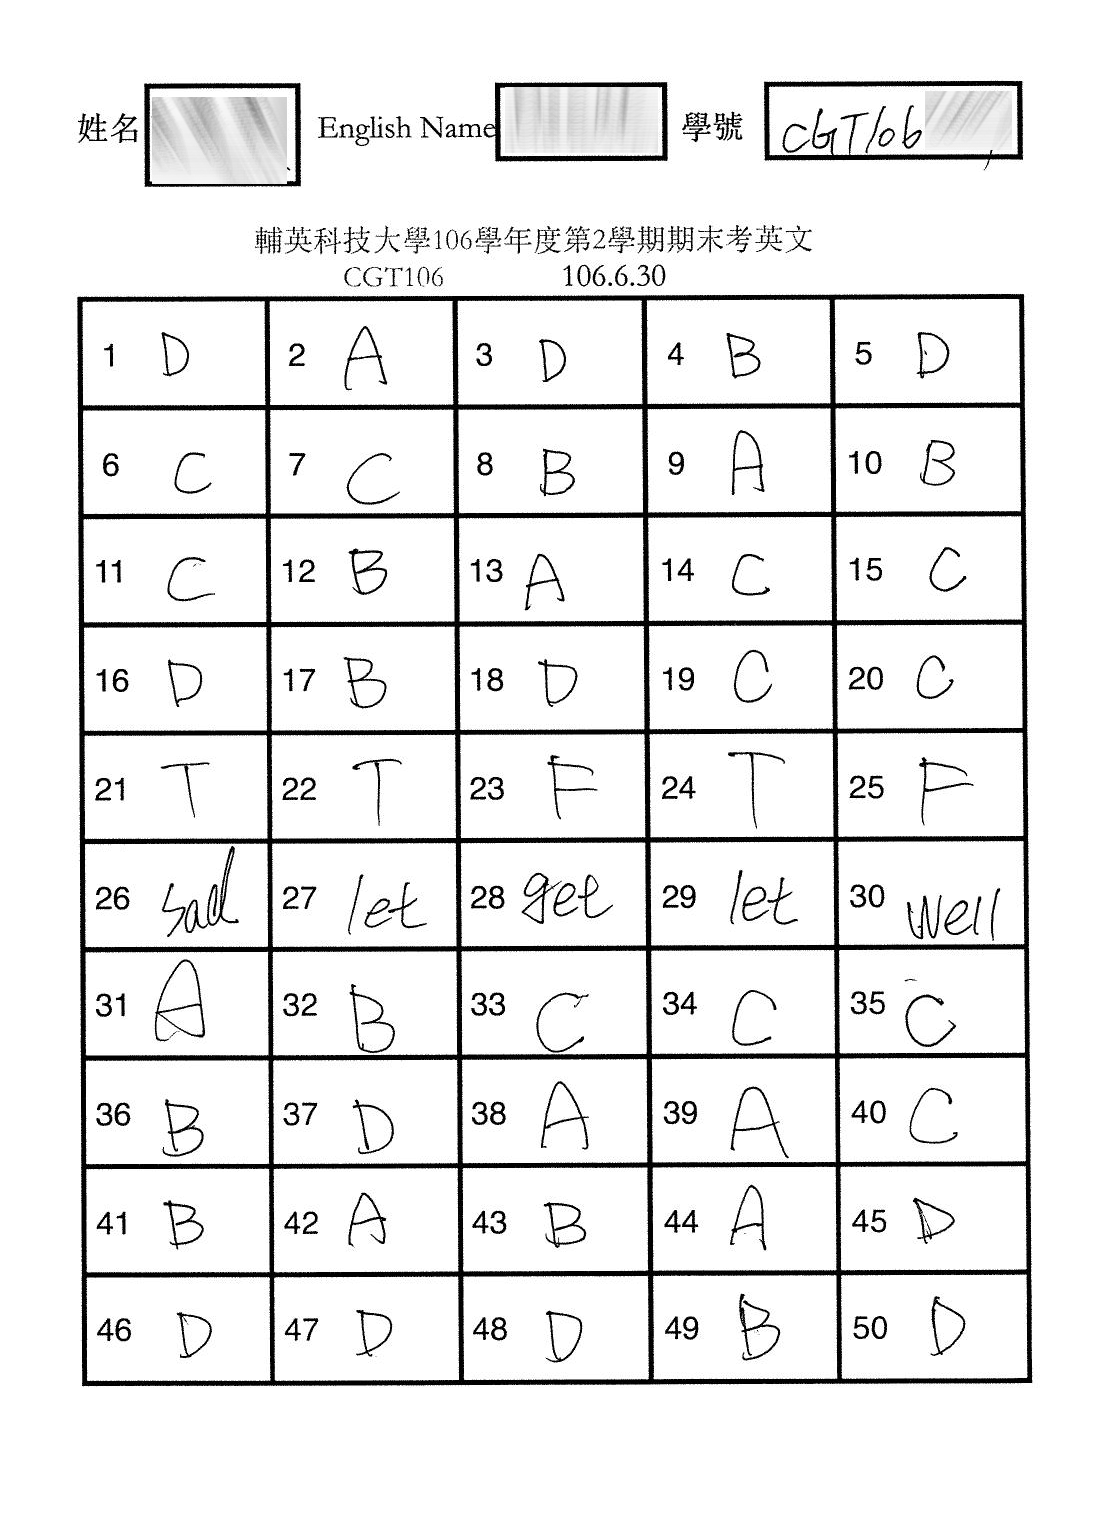 姓名 English Name 學號 CGT106
輔英科技大學106學年度第2學期期末考英文
CGT106 106.6.30
1 D 2 A 3 D 4 B 5 D
6 C 7 C 8 B 9 A 10 B
11 C 12 B 13 A 14 C 15 C
16 D 17 B 18 D 19 C 20 C
21 T 22 T 23 F 24 T 25 F
26 sad 27 let 28 get 29 let 30 well
31 A 32 B 33 C 34 C 35 C
36 B 37 D 38 A 39 A 40 C
41 B 42 A 43 B 44 A 45 D
46 D 47 D 48 D 49 B 50 D